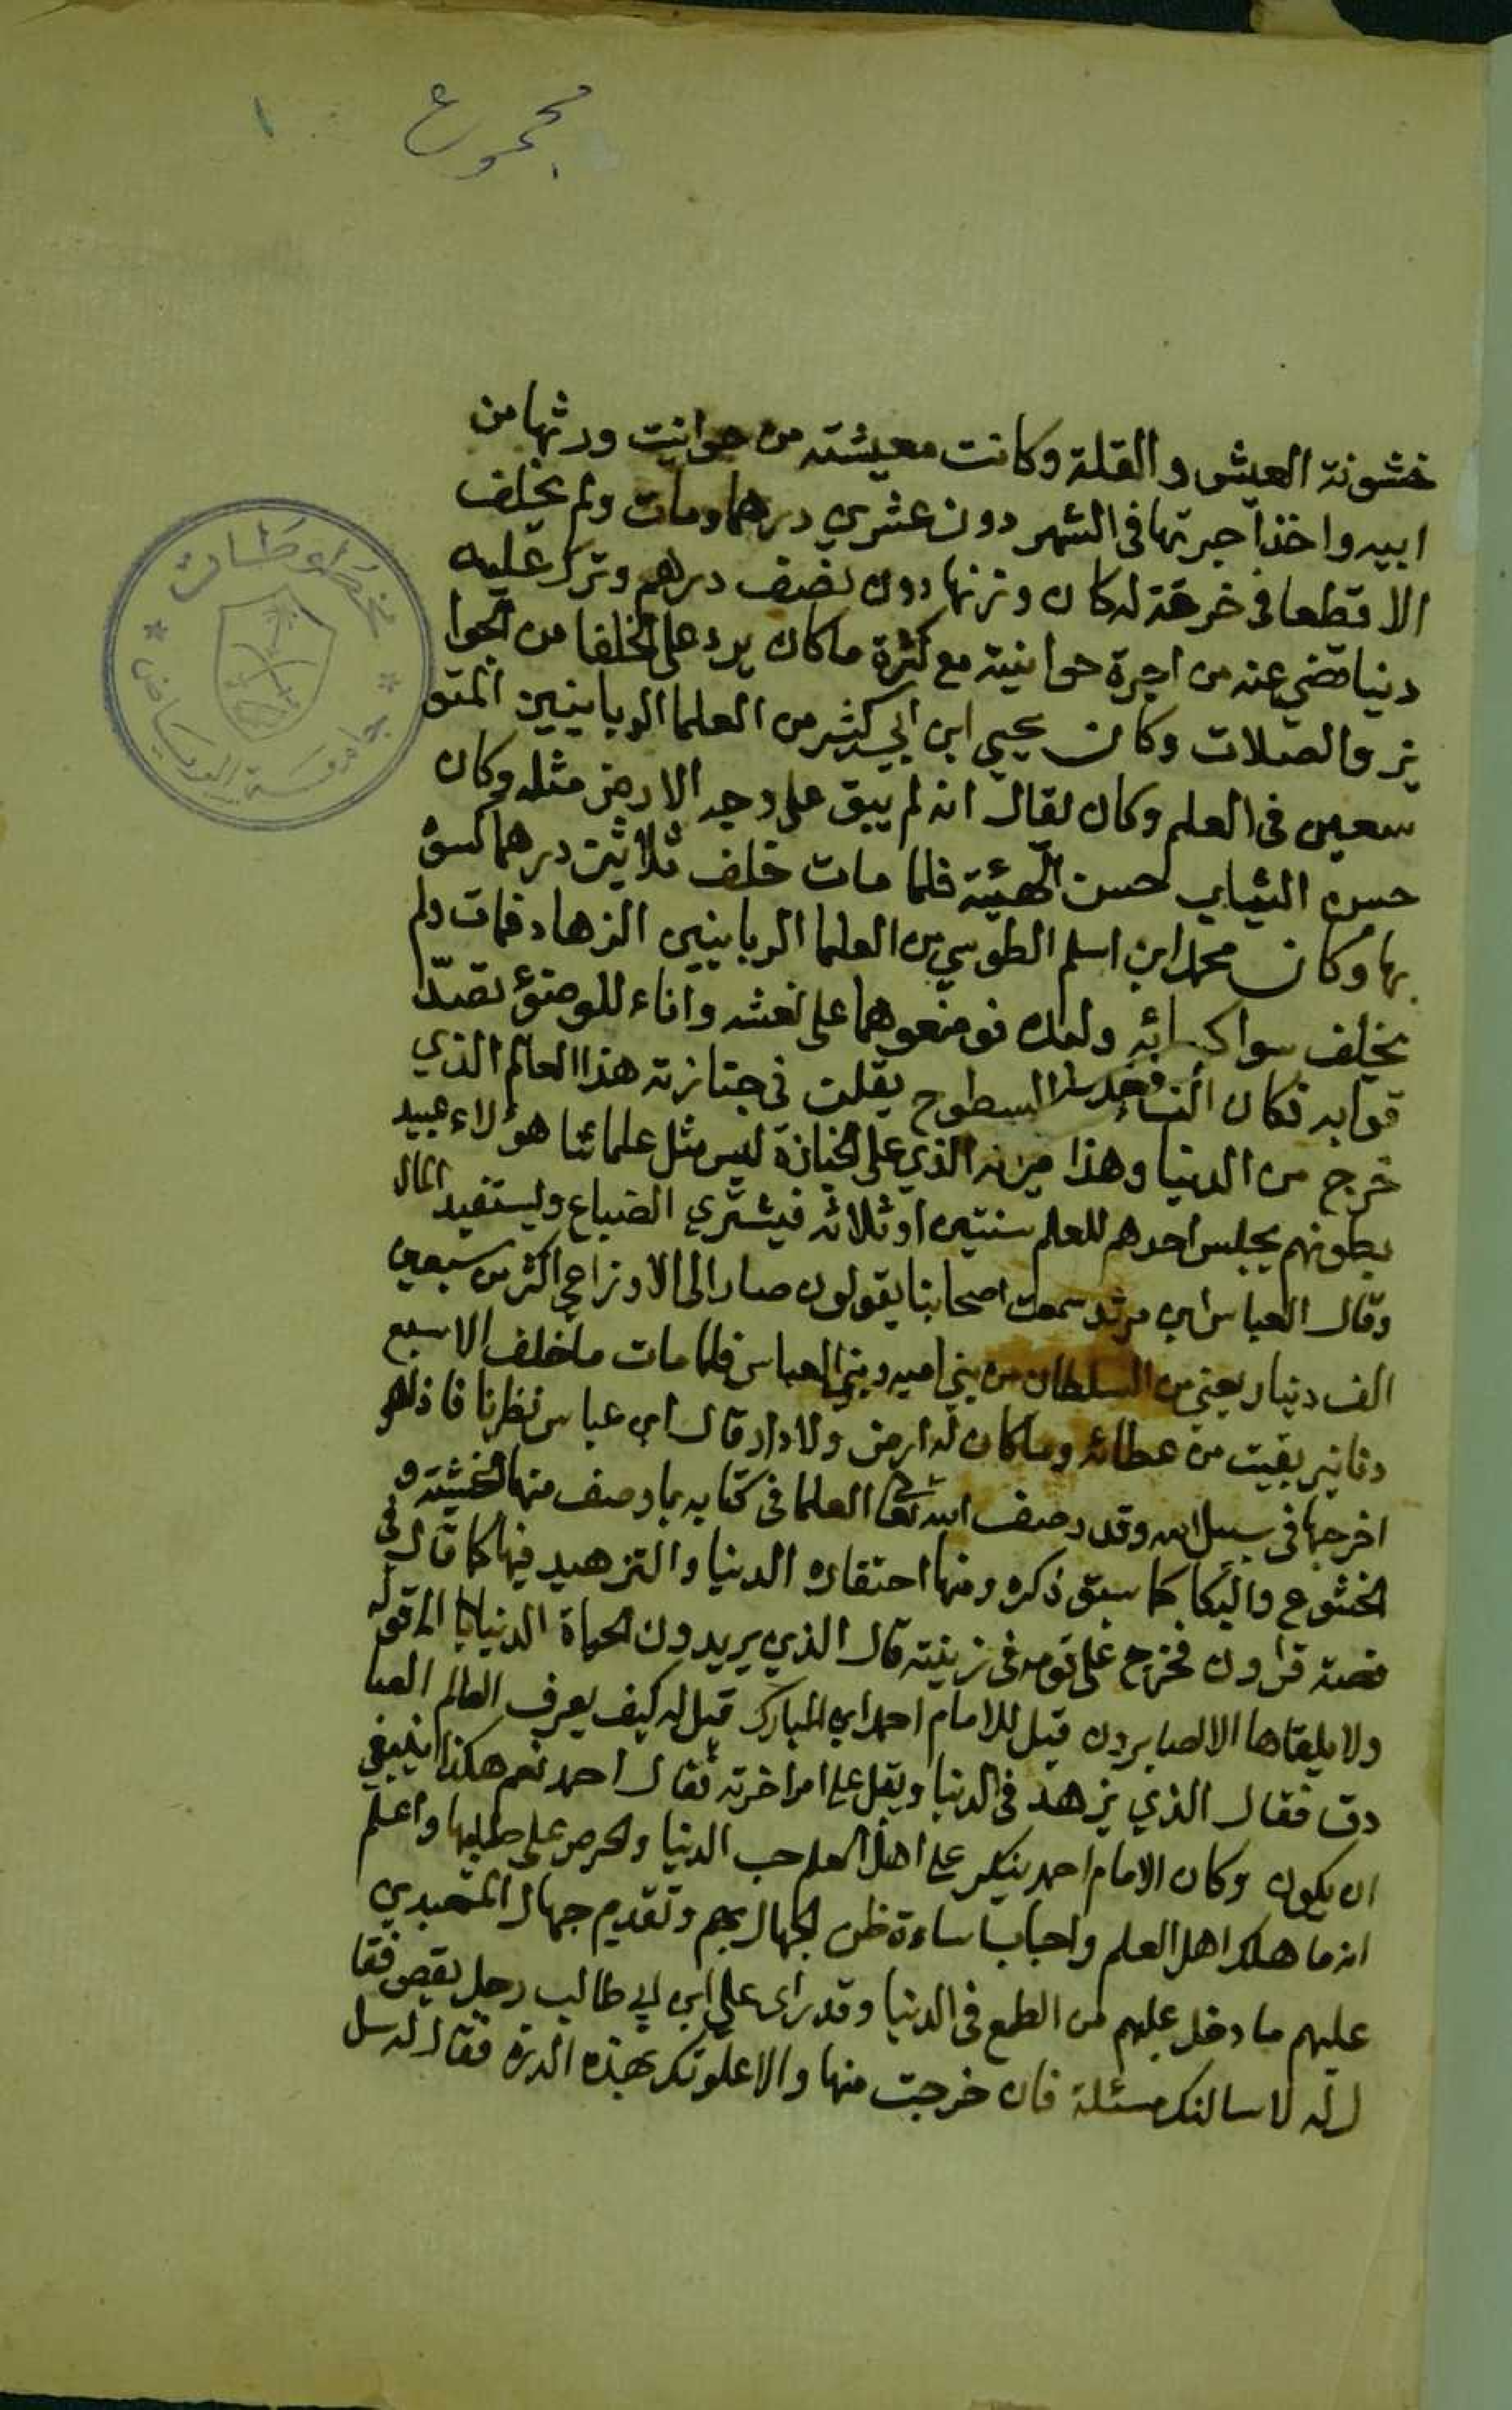 مجموع ١
مخطوطات
جامعة الرياض
خشونة العيش والقلة وكانت معيشته من حوانيت ورثها من
ابيه واخذ اجرتها في الشهر دون عشرين درهما ومات ولم يخلف
الا قطعا في خرقة له كان وزنها دون نصف درهم وترك عليه
دينا قضي عنه من اجرة حوانيته مع كثرة ما كان يرد على الخلفا من الجوا
ئز والصلات وكان يحيى ابن ابي كثير من العلما الربانيين المتو
سعين في العلم وكان يقال انه لم يبق على وجه الارض مثله وكان
حسن الثياب حسن الهيئة فلما مات خلف ثلاثين درهما كفن
بها وكان محمد ابن اسلم الطوسي من العلما الربانيين الزهاد فمات ولم
يخلف سوا كسائه ولبده فوضعوهما على نعشه واناء للوضوء تصد
قوا به فكان النساء على السطوح يقلن في جنازته هذا العالم الذي
خرج من الدنيا وهذا ميراثه الذي على الجنازة ليس مثل علمائنا هؤلاء عبيد
بطونهم يجلس احدهم للعلم سنتين او ثلاثه فيشتري الضياع ويستفيد المال
وقال العباس ابن مرثد سمعت اصحابنا يقولون صار الى الاوزاعي اكثر من سبعين
الف دينار يعني من السلطان من بني اميه وبني العباس فلما مات ما خلف الا سبع
دنانير بقيت من عطائه وما كان له ارض ولا دار قال ابن عباس نظرنا فاذا هو
اخرجها في سبيل الله وقد وصف الله تعالى العلما في كتابه بما وصف منها الخشية و
الخشوع والبكا كما سبق ذكره ومنها احتقار الدنيا والتزهيد فيها كما قال في
قصة قارون فخرج على قومه في زينته قال الذين يريدون الحياة الدنيا الى قوله
ولا يلقاها الا الصابرون قيل للامام احمد ابن المبارك قيل له كيف يعرف العالم الصا
دق فقال الذي يزهد في الدنيا ويقبل على امر اخرته فقال احمد نعم هكذا ينبغي
ان يكون وكان الامام احمد ينكر على اهل العلم حب الدنيا والحرص على طلبها واعلم
انه ما هلك اهل العلم واحباب اساءة ظن الجهال بهم وتقديم جهال المتعبدين
عليهم ما دخل عليهم من الطمع في الدنيا وقد راى علي ابن ابي طالب رجل يقص فقا
ل له لاسالنك مسئلة فان خرجت منها والا علوتك بهذه الدره فقال له سل